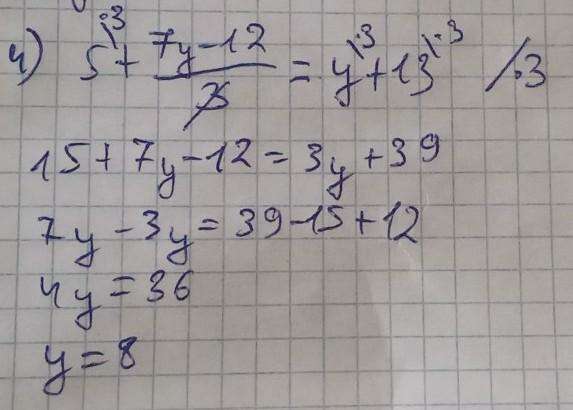 4) 5^{\·3} + \frac{7y-12}{3} = y^{\·3} + 13^{\·3} /·3
15 + 7y - 12 = 3y + 39
7y - 3y = 39 - 15 + 12
4y = 36
y = 8